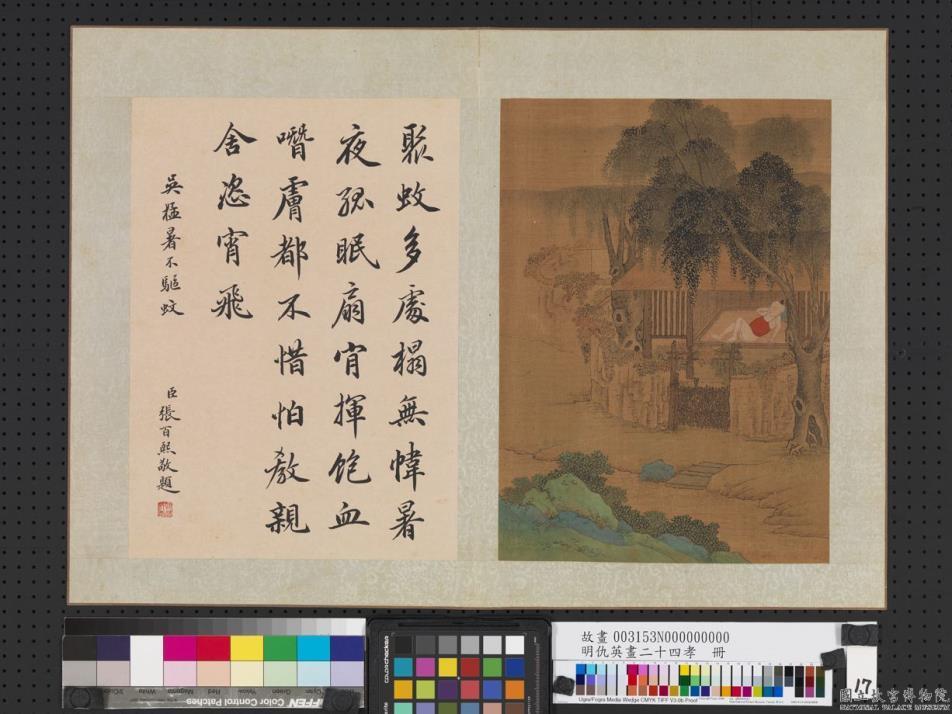 聚蚊多處榻無幃暑
夜孤眠扇肯揮飽血
噆膚都不惜怕教親
舍恣宵飛
吳猛暑不驅蚊
臣張百熙敬題
故畫 003153N000000000
明仇英畫二十四孝 冊
Ugra/Fogra Media Wedge CMYK TIFF V3.0b Proof
17
Color Control Patches
colorchecker
國立故宮博物院
NATIONAL PALACE MUSEUM